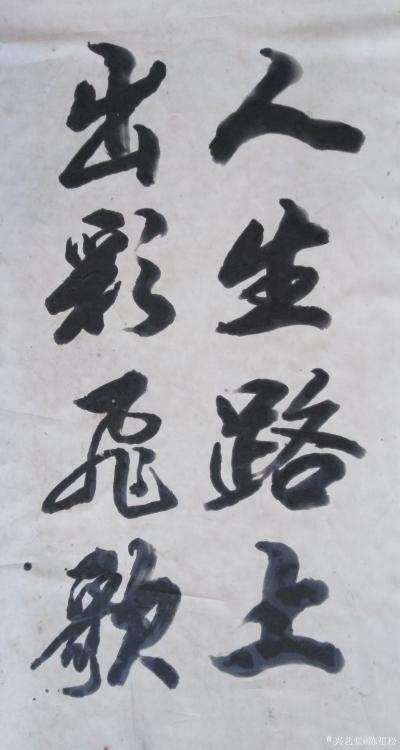 人生路上
出彩飛歌
兴艺堂@陈祖松